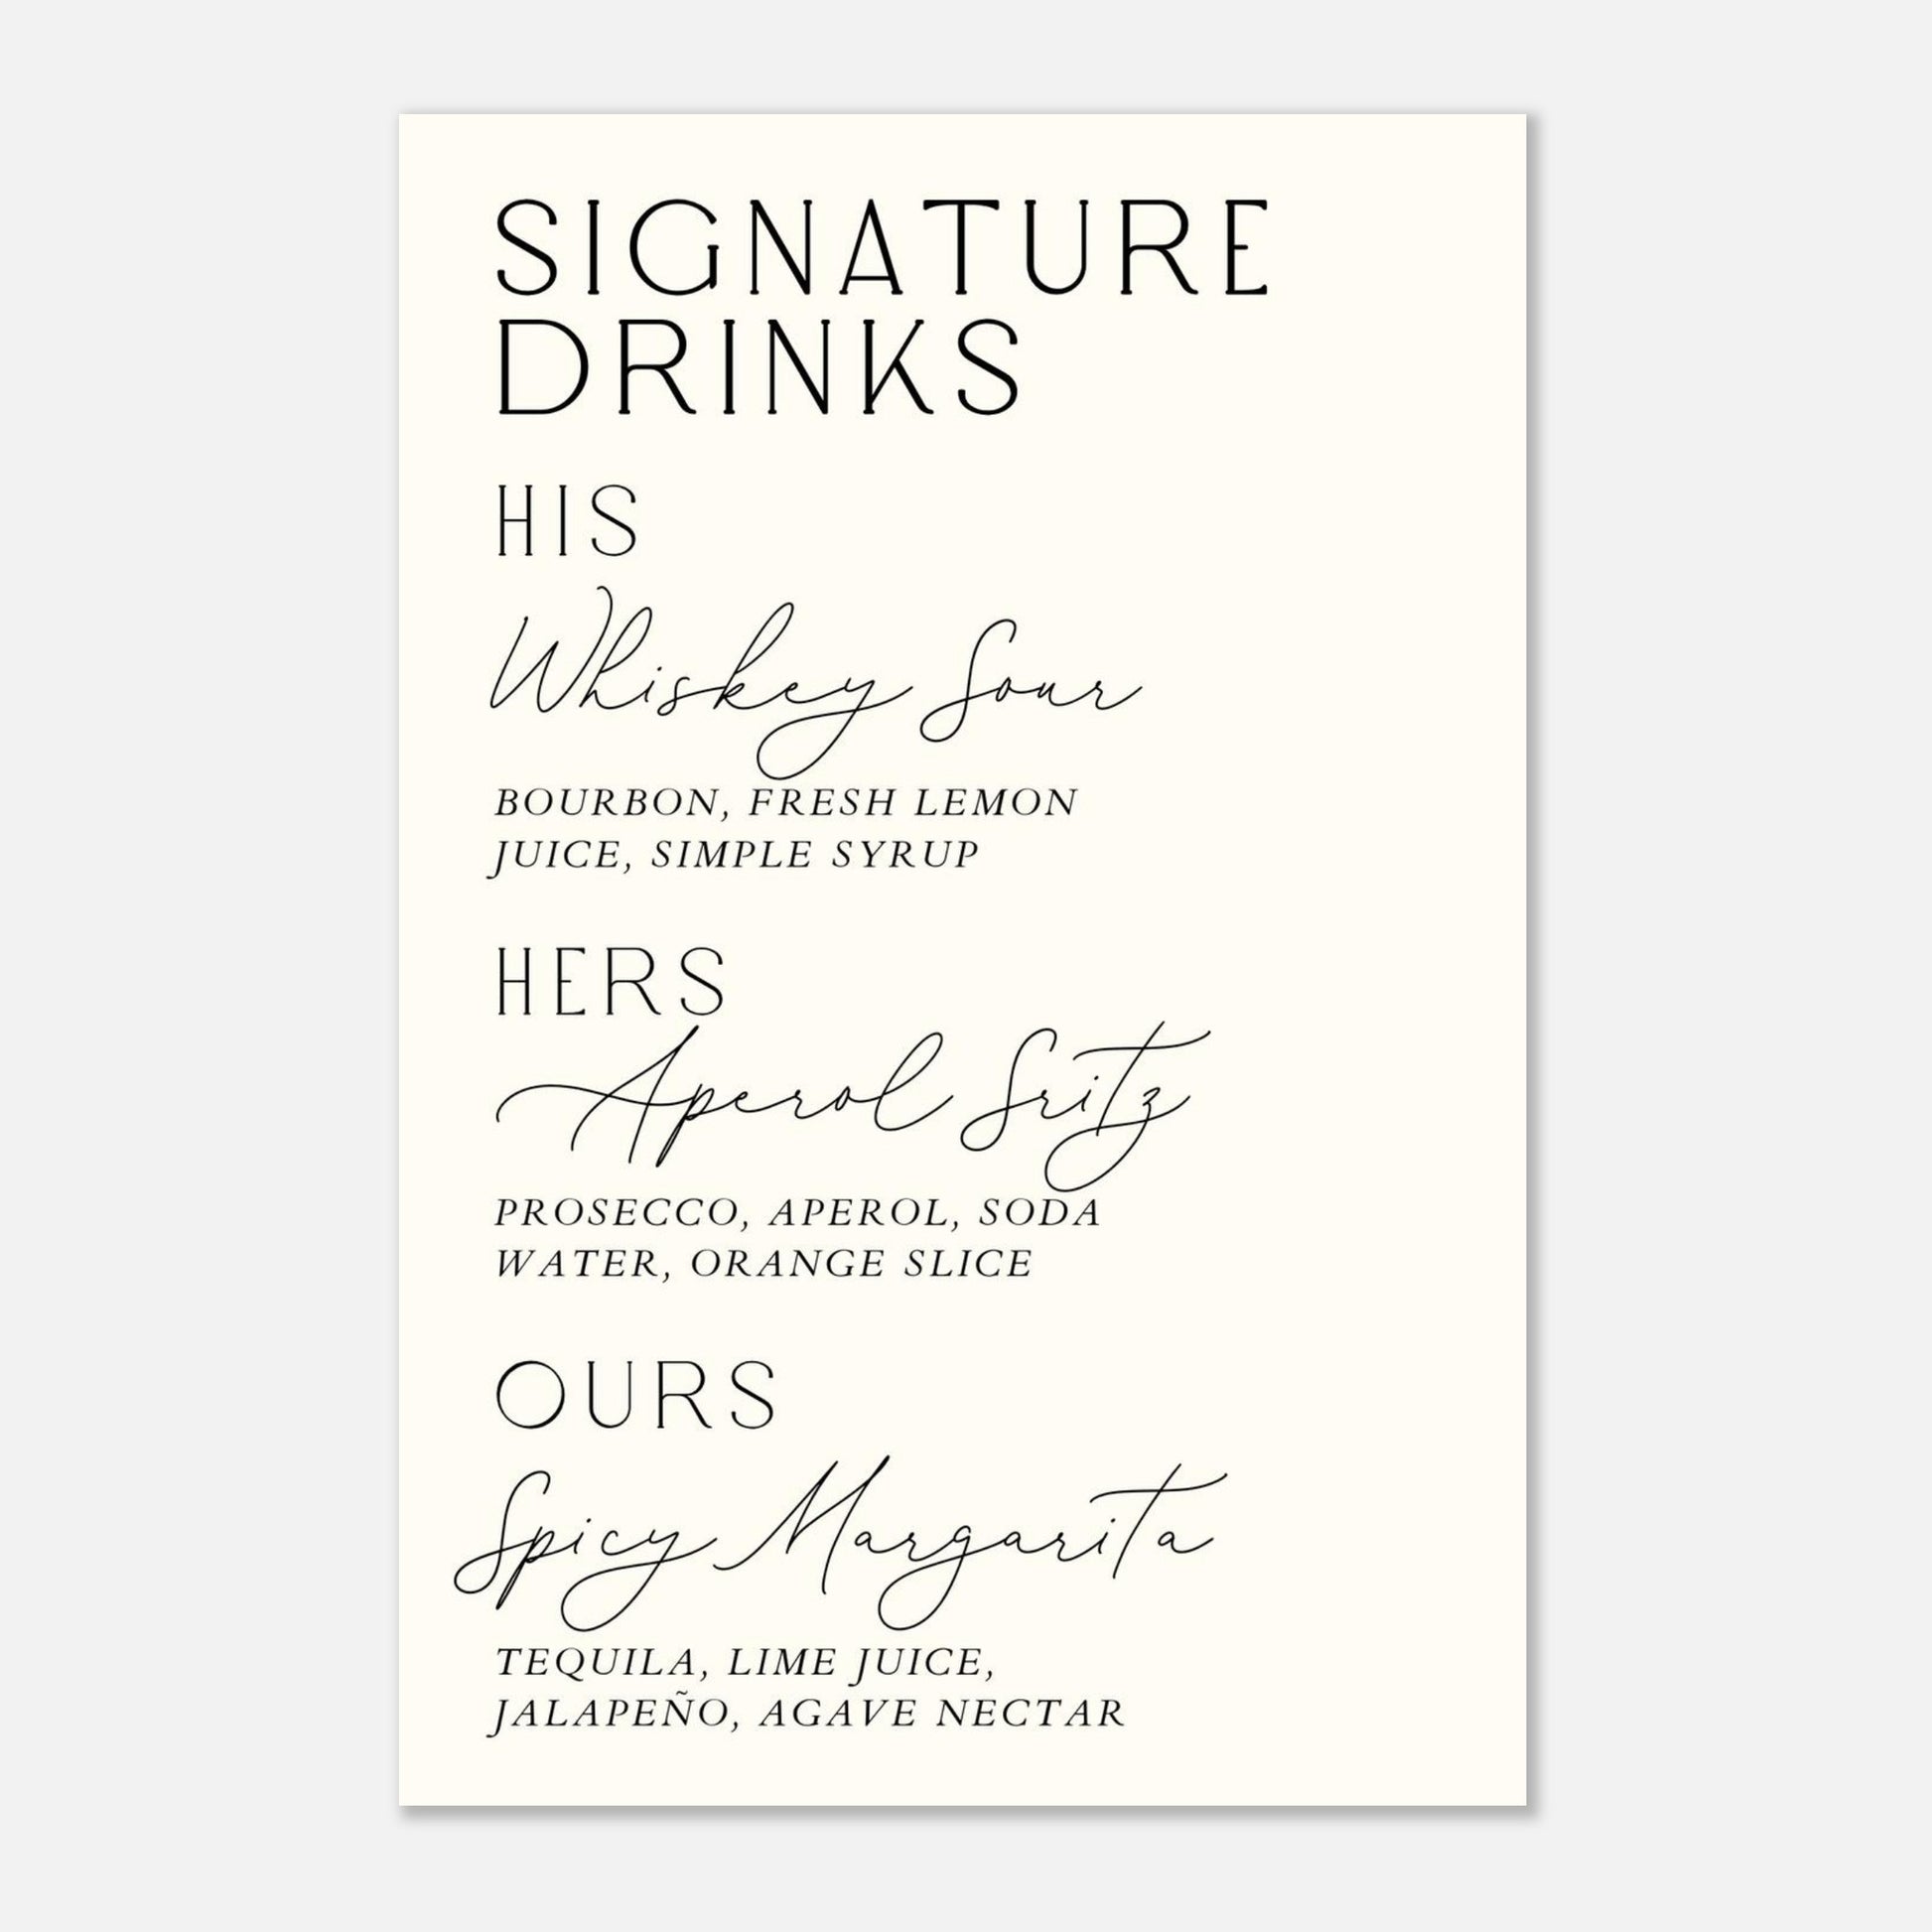 SIGNATURE
DRINKS
HIS
Whiskey Sour
BOURBON, FRESH LEMON
JUICE, SIMPLE SYRUP
HERS
Aperol Sritz
PROSECCO, APEROL, SODA
WATER, ORANGE SLICE
OURS
Spicy Margarita
TEQUILA, LIME JUICE,
JALAPEÑO, AGAVE NECTAR